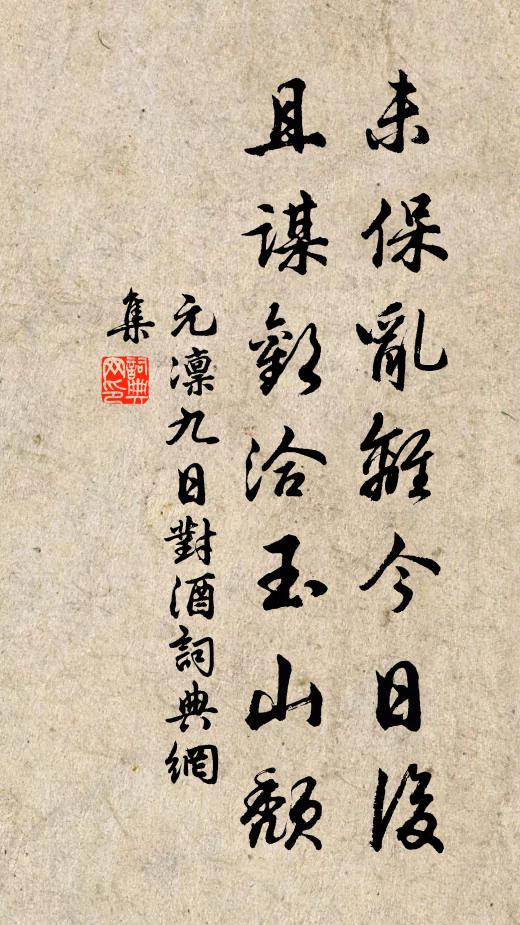 未保亂離今日後
且謀歡洽玉山頹
元凜九日對酒詞典網
集
詞典
网印